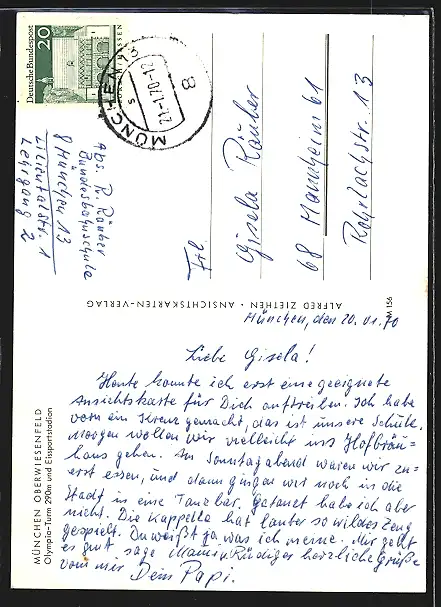 München, den 20.01.70
Liebe Gisela!
Heute konnte ich erst eine geeignete
Ansichtskarte für Dich auftreiben. Ich habe
vorn ein Kreuz gemacht, das ist unsere Schule.
Morgen wollen wir vielleicht ins Hofbräu-
haus gehen. Am Sonntagabend waren wir zu-
erst essen, und dann gingen wir noch in die
Stadt in eine Tanzbar. Getanzt habe ich aber
nicht. Die Kappelle hat lauter so wildes Zeug
gespielt. Du weißt ja was ich meine. Mir geht
es gut sage Mami u. Rüdiger herzliche Grüße
von mir Dein Papi.
MÜNCHEN OBERWIESENFELD
Olympia-Turm 290m und Eissportstadion
ALFRED ZIETHEN · ANSICHTSKARTEN-VERLAG
M 156
Abs. R. Räuber
Bundesbahnschule
8 München 13
Lilientalstr. 1
Lehrgang 2
Deutsche Bundespost
20
LORSCH/HESSEN
MÜNCHEN 13
s
21.-1.70-12
8
Frl.
Gisela Räuber
68 Mannheim 61
Rohrlachstr. 13